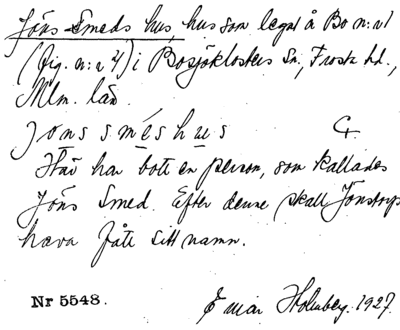 Jöns Smeds hus, hus som legat å Bo n:r 1
(fig. n:r 4) i Bosjöklosters Sn., Frosta hd.,
Mlm. län.
jöns smés hus G.
Här har bott en person, som kallades
Jöns Smed. Efter denne skall Jönstorp
hava fått sitt namn.
Nr 5548. Einar Holmberg. 1927.